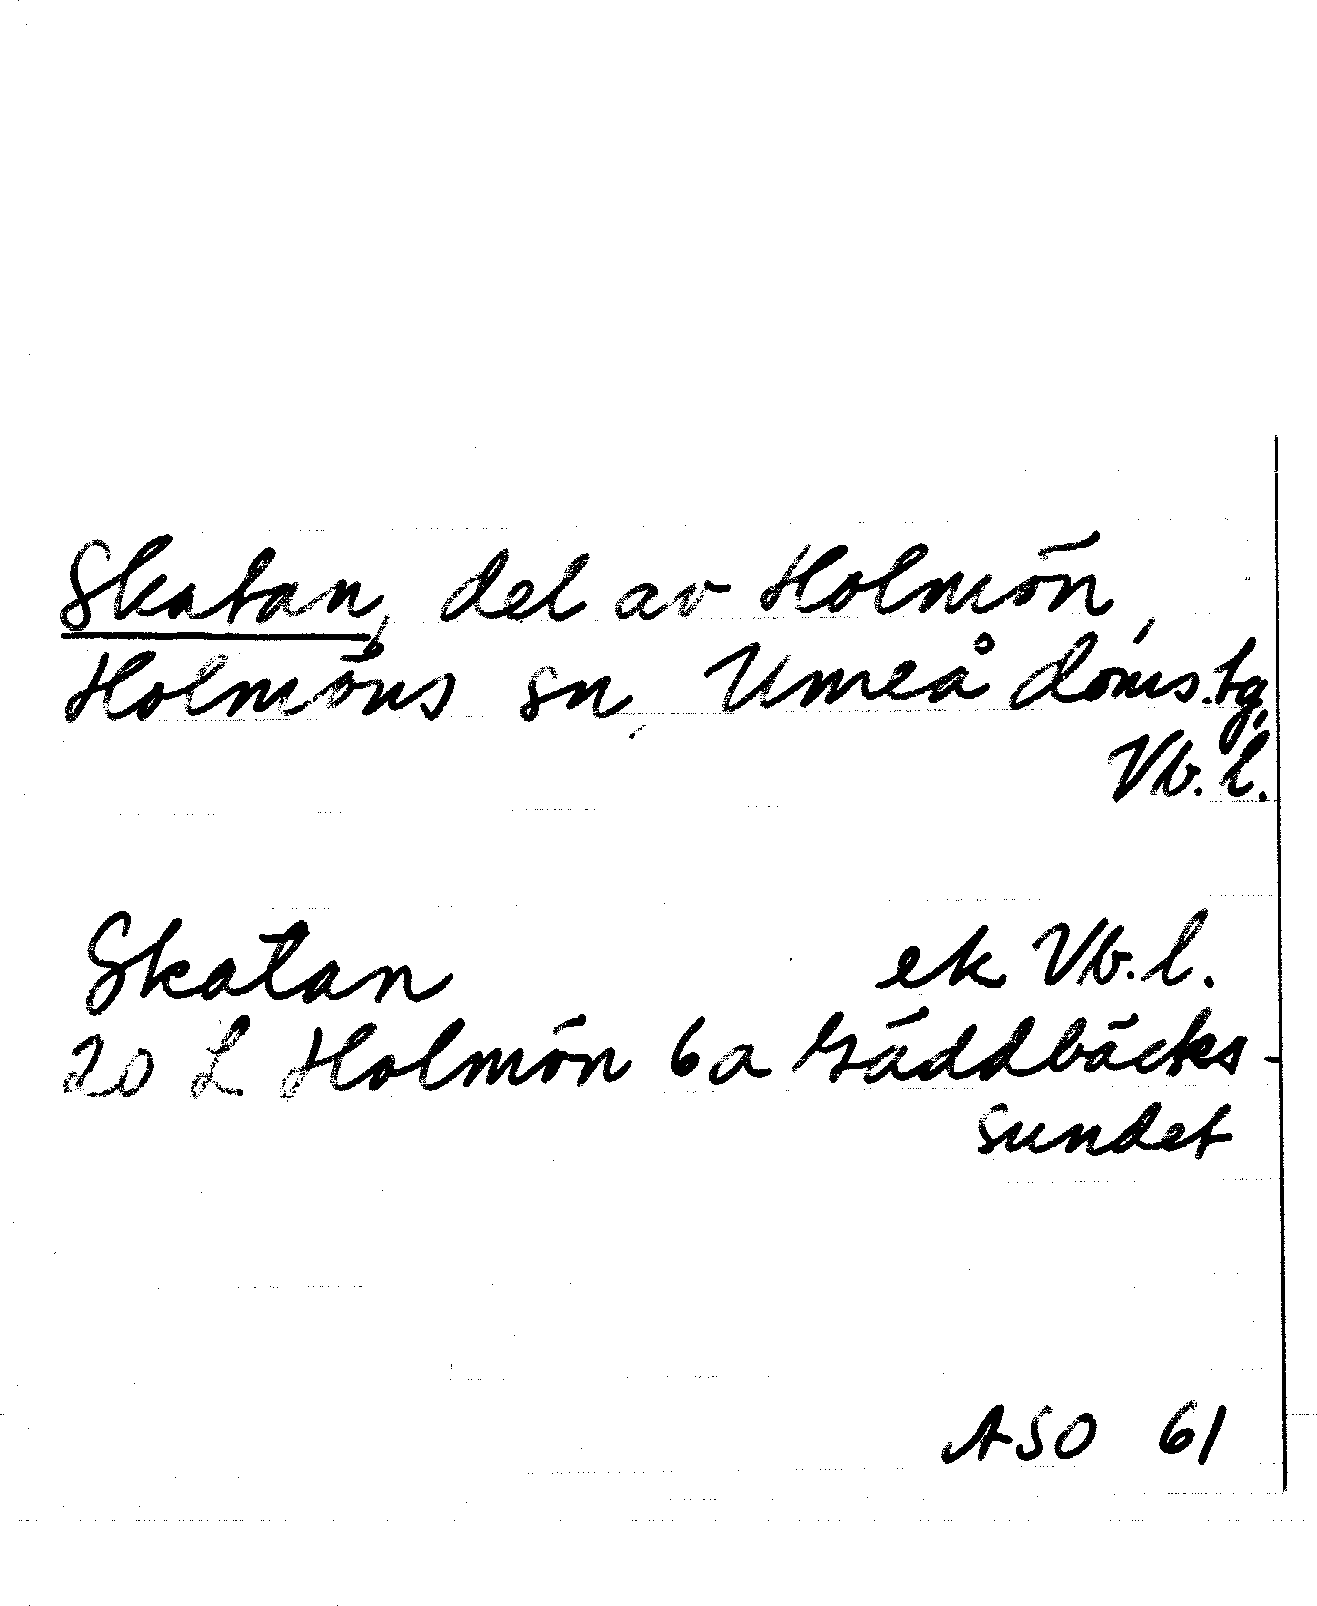 Skatan, del av Holmön,
Holmöns sn, Umeå doms.tg,
Vb.l.
Skatan ek Vb.l.
20 L Holmön 6a Gäddbäcks-
sundet
ASO 61